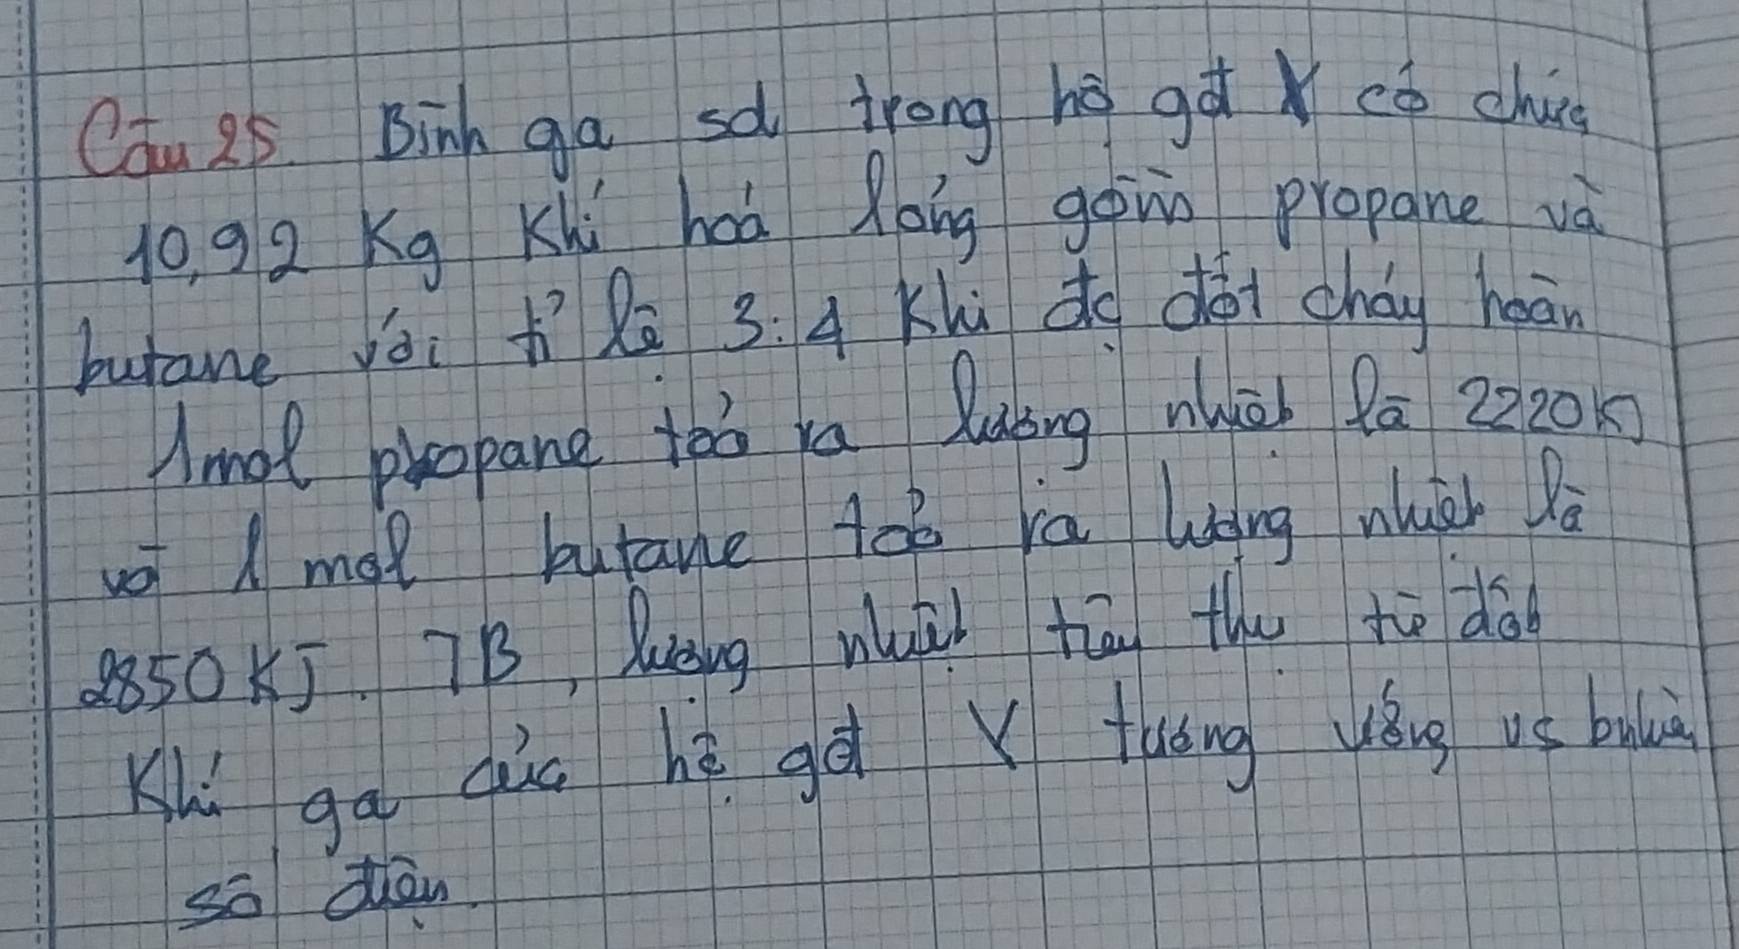 Câu 25. Bình ga sd trong hộ gđ Y có chứa
10,92 Kg Khí hoá lỏng gồm propane và
butane với tỉ lệ 3:4 Khi đc đốt cháy hoàn
1 mol propane toả ra lượng nhiệt là 2220KJ
và 1 mol butane toả ra lượng nhiệt là
2850 KJ. TB, lượng nhiệt tiêu thụ từ đốt
Khí ga của hộ gđ Y tương ứng vs bnhiêu
số điện.